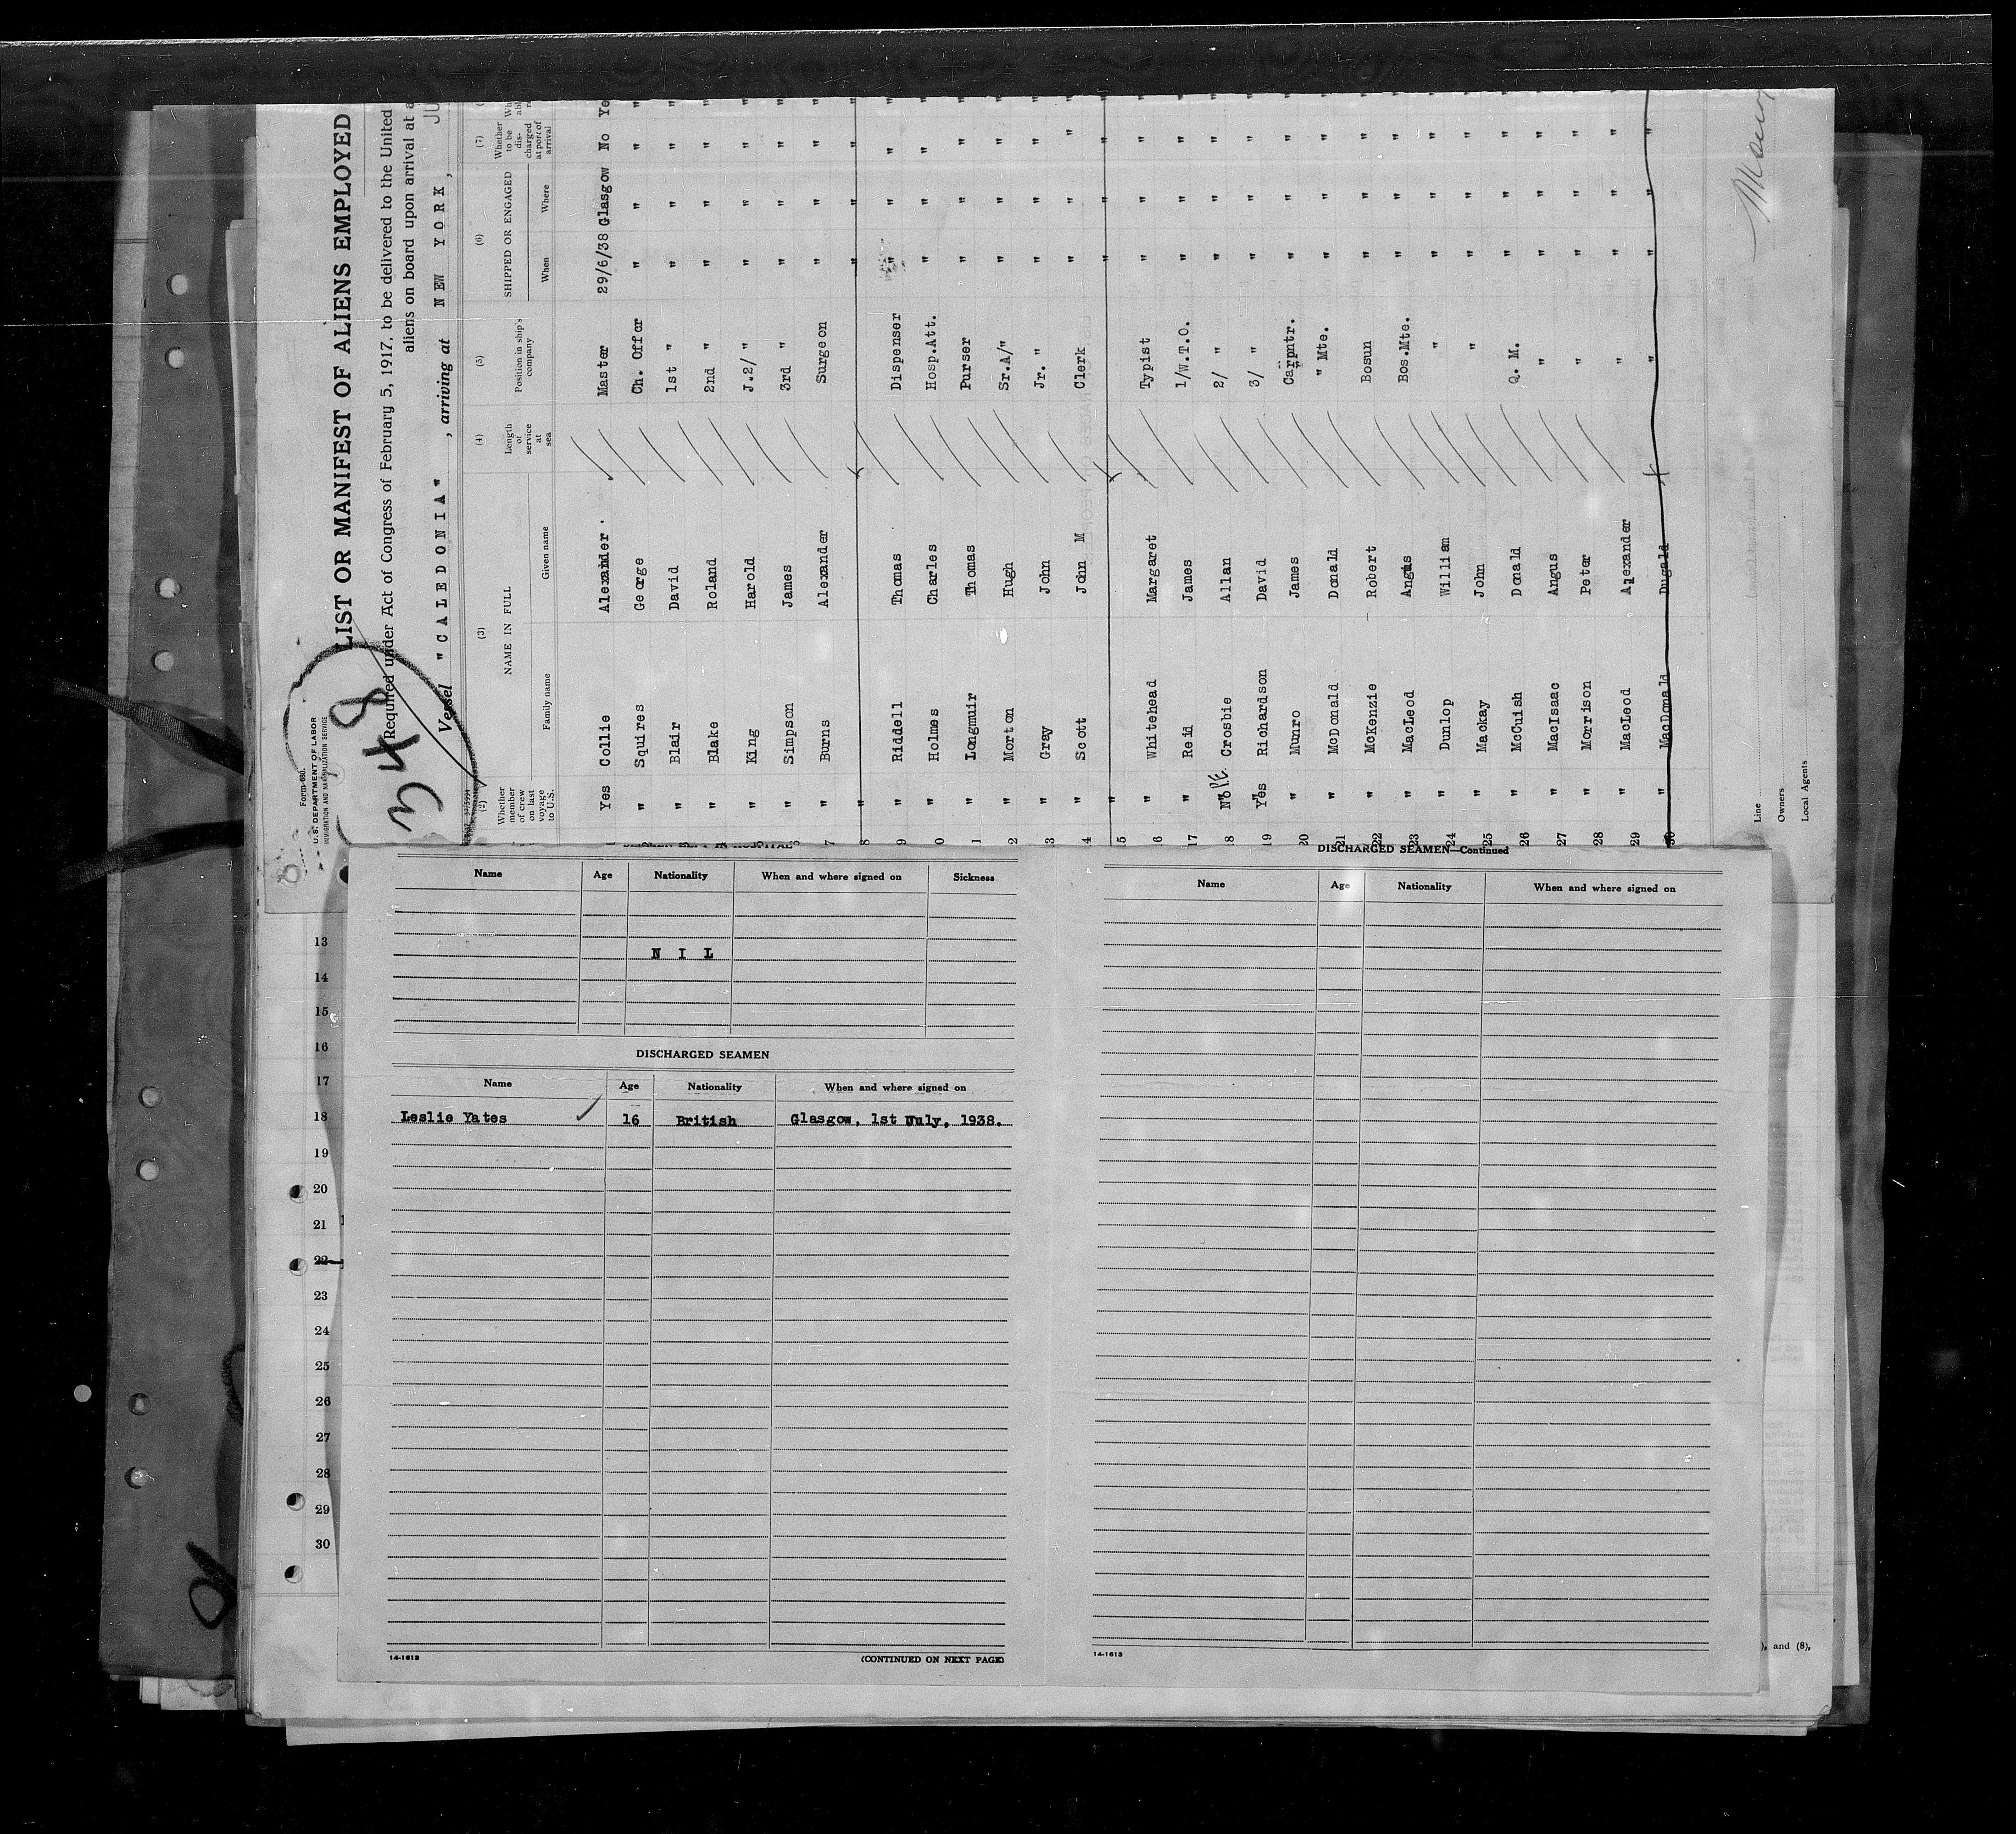 Form 680.
U.S. DEPARTMENT OF LABOR
IMMIGRATION AND NATURALIZATION SERVICE
348
LIST OR MANIFEST OF ALIENS EMPLOYED
Required under Act of Congress of February 5, 1917, to be delivered to the United
aliens on board upon arrival at a
Vessel "CALEDONIA" , arriving at NEW YORK, JU
(2) (3) (4) (5) (6) (7)
Whether member of crew on last voyage to U.S. NAME IN FULL Family name Given name Length of service at sea Position in ship's company SHIPPED OR ENGAGED When Where Whether to be discharged at port of arrival
Yes Collie Alexander. Master 29/6/38 Glasgow No Ye
2 " Squires George Ch. Offer " " " "
3 " Blair David 1st " " " " "
" Blake Roland 2nd " " " " "
" King Harold J.2/ " " " " "
6 " Simpson James 3rd " " " " "
7 " Burns Alexander Surgeon " " " "
8 " " " " "
9 " Riddell Thomas Dispenser " " " "
0 " Holmes Charles Hosp.Att. " " " "
1 " Longmuir Thomas Purser " " " "
2 " Morton Hugh Sr.A/" " " " "
3 " Gray John Jr. " " " " "
4 " Scott John M Clerk " " " "
5 " " " " "
6 " Whitehead Margaret Typist " " " "
17 " Reid James 1/W.T.O. " " " "
18 No Crosbie Allan 2/ " " " " "
19 Yes Richardson David 3/ " " " " "
20 " Munro James Carpntr. " " " "
21 " McDonald Donald " Mte. " " " "
22 " McKenzie Robert Bosun " " " "
23 " MacLeod Angus Bos.Mte. " " " "
24 " Dunlop William " " " " "
25 " Mackay John " " " " "
26 " McCuish Donald Q. M. " " " "
27 " MacIsaac Angus " " " " "
28 " Morrison Peter " " " " "
29 " MacLeod Alexander " " " " "
30 " MacDonald Dugald " " " " "
Line
Owners
Local Agents
Name Age Nationality When and where signed on Sickness
NIL
DISCHARGED SEAMEN
Name Age Nationality When and where signed on
Leslie Yates 16 British Glasgow, 1st July, 1938.
14-1613 (CONTINUED ON NEXT PAGE)
DISCHARGED SEAMEN—Continued
Name Age Nationality When and where signed on
14-1613
13
14
15
16
17
18
19
20
21
22
23
24
25
26
27
28
29
30
), and (8),